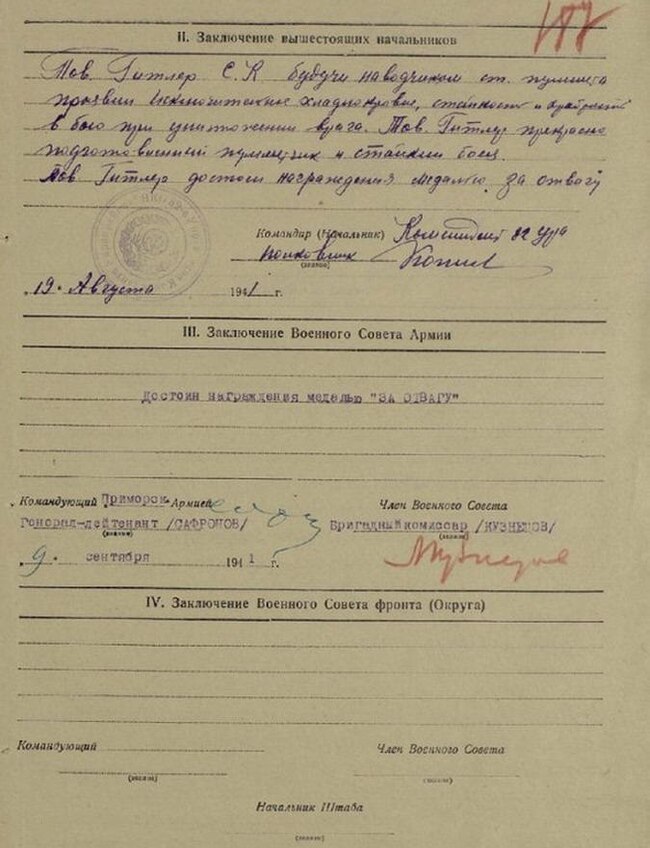 187
II. Заключение вышестоящих начальников
Тов. Гитлер С.К будучи наводчиком ст. пулимета
проявил исключительное хладнокровие, стойкость и храбрость
в бою при уничтожении врага. Тов. Гитлер прекрасно
подготовленный пулиметчик и стойкий боец.
Тов Гитлер достоин награждения медалью за отвагу
Командир (Начальник) Комендант 82 ура
полковник
(звание)
19. Августа 1941 г.
III. Заключение Военного Совета Армии
Достоин награждения медалью "ЗА ОТВАГУ"
Командующий Приморск Армией
Член Военного Совета
Генерал-лейтенант /САФРОНОВ/
Бригадный комиссар /КУЗНЕЦОВ/
(звание)
(звание)
9. сентября 1941 г.
IV. Заключение Военного Совета фронта (Округа)
Командующий
Член Военного Совета
(звание)
(звание)
Начальник Штаба
(звание)